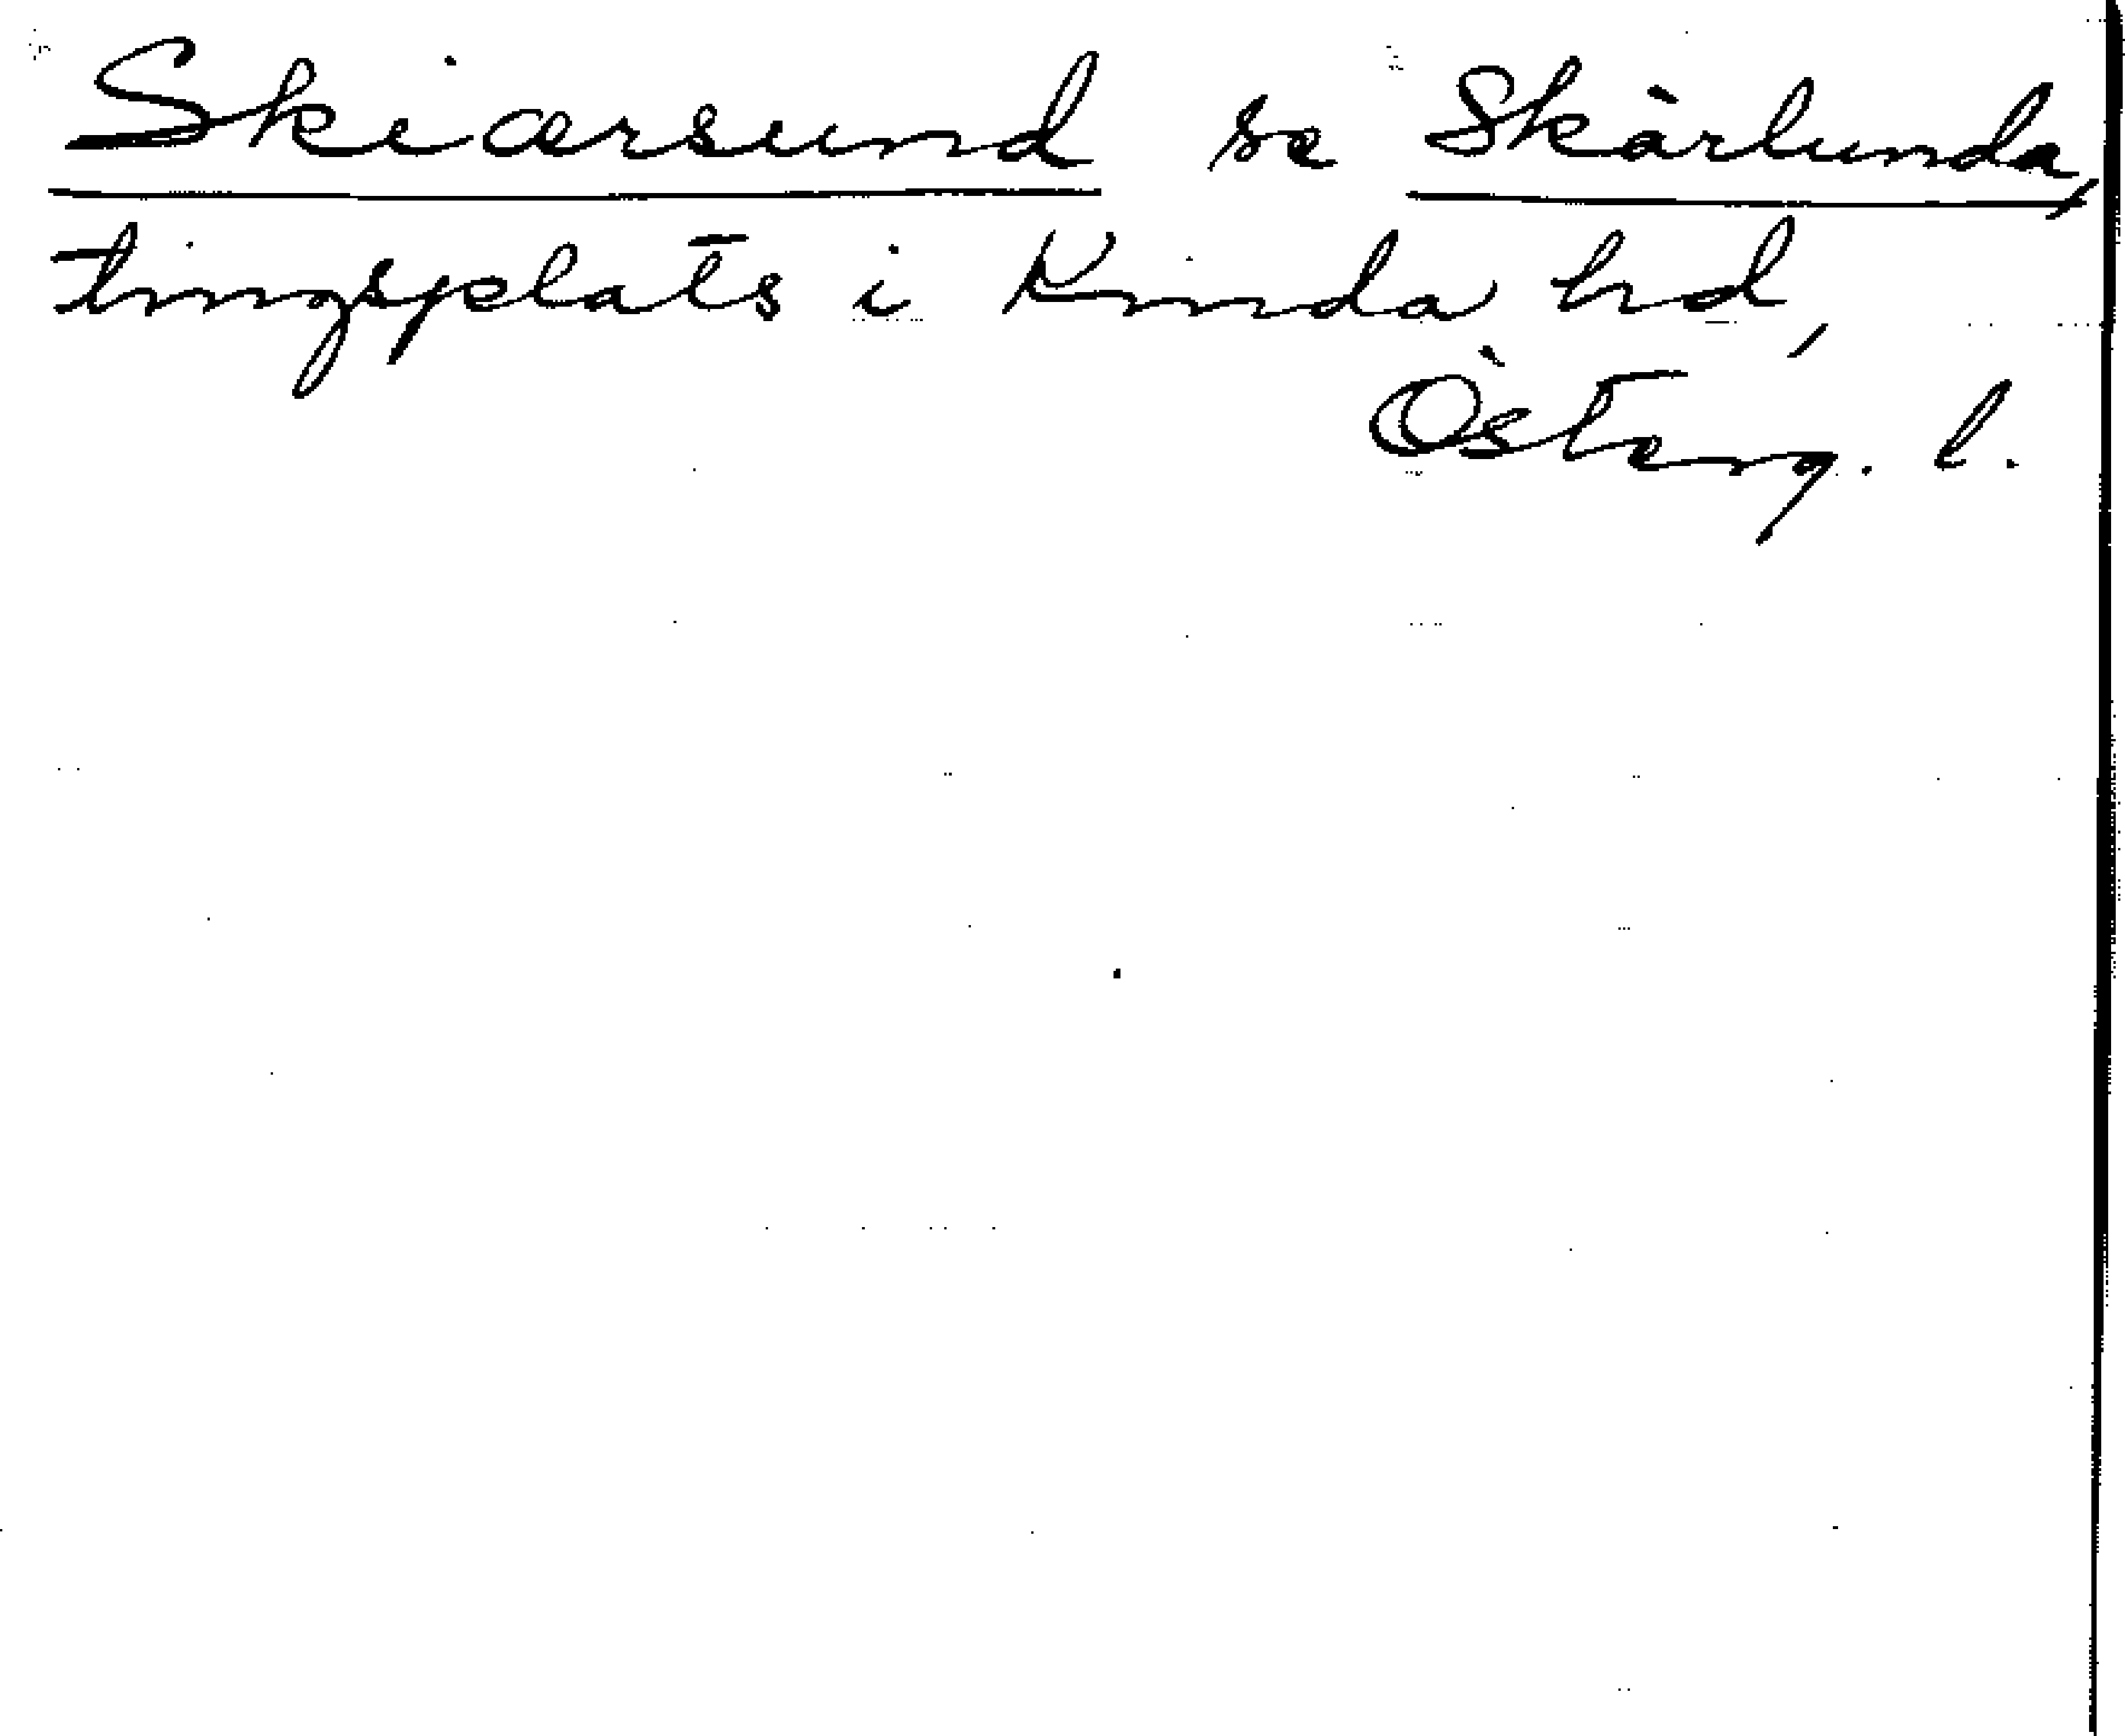 Skiærsund se Skärlunda,
tingsplats i Kinda hd,
Österg. l.